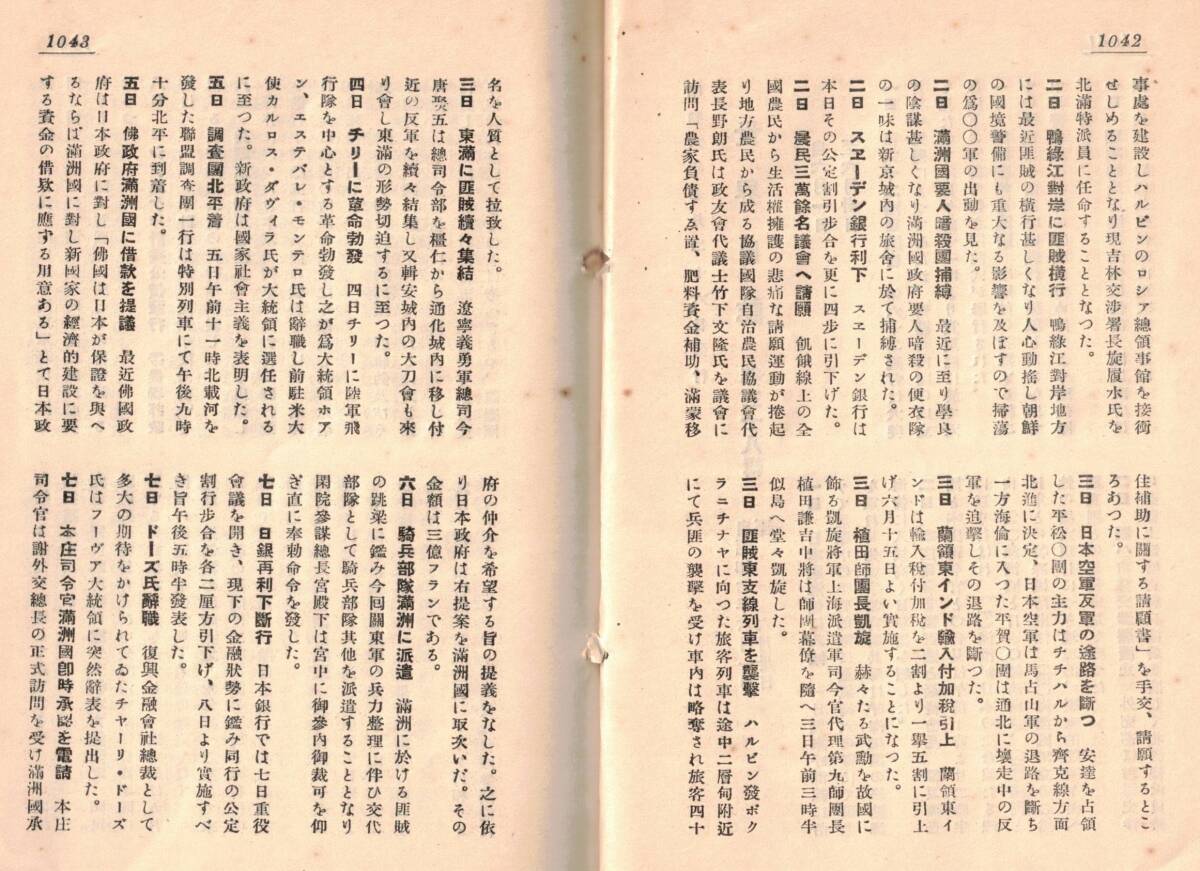 1042
事處を建設しハルビンのロシア總領事館を接衝
せしめることとなり現吉林交渉署長施履本氏を
北滿特派員に任命することとなつた。
二日　鴨綠江對岸に匪賊横行　鴨綠江對岸地方
には最近匪賊の横行甚しくなり人心動搖し朝鮮
の國境警備にも重大なる影響を及ぼすので掃蕩
の爲〇〇軍の出動を見た。
二日　滿洲國要人暗殺團捕縛　最近に至り學良
の陰謀甚しくなり滿洲國政府要人暗殺の便衣隊
の一味は新京城内の旅舍に於て捕縛された。
二日　スヱーデン銀行利下　スヱーデン銀行は
本日その公定割引歩合を更に四歩に引下げた。
二日　農民三萬餘名議會へ請願　飢餓線上の全
國農民から生活權擁護の悲痛な請願運動が捲起
り地方農民から成る協議國隊自治農民協議會代
表長野朗氏は政友會代議士竹下文隆氏を議會に
訪問「農家負債すゑ置、肥料資金補助、滿蒙移
住補助に關する請願書」を手交、請願するとこ
ろあつた。
三日　日本空軍反軍の途路を斷つ　安達を占領
した平松〇團の主力はチチハルから齊克線方面
北進に決定、日本空軍は馬占山軍の退路を斷ち
一方海倫に入つた平賀〇團は通北に壞走中の反
軍を追擊しその退路を斷つた。
三日　蘭領東インド輸入付加税引上　蘭領東イ
ンドは輸入税付加税を二割より一擧五割に引上
げ六月十五日よい實施することになつた。
三日　植田師團長凱旋　赫々たる武勳を故國に
飾る凱旋將軍上海派遣軍司令官代理第九師團長
植田謙吉中將は師團幕僚を隨へ三日午前三時半
似島へ堂々凱旋した。
三日　匪賊東支線列車を襲擊　ハルビン發ポク
ラニチナヤに向つた旅客列車は途中二層甸附近
にて兵匪の襲擊を受け車内は略奪され旅客四十
1043
名を人質として拉致した。
三日　東滿に匪賊續々集結　遼寧義勇軍總司令
唐聚五は總司令部を樞仁から通化城内に移し付
近の反軍を續々結集し又輯安城内の大刀會も來
り會し東滿の形勢切迫するに至つた。
四日　チリーに革命勃發　四日チリーに陸軍飛
行隊を中心とする革命勃發し之が爲大統領ホア
ン、エステバレ・モンテロ氏は辭職し前駐米大
使カルロス・ダヴィラ氏が大統領に選任される
に至つた。新政府は國家社會主義を表明した。
五日　調査團北平着　五日午前十一時北載河を
發した聯盟調査團一行は特別列車にて午後九時
十分北平に到着した。
五日　佛政府滿洲國に借款を提議　最近佛國政
府は日本政府に對し「佛國は日本が保證を與へ
るならば滿洲國に對し新國家の經濟的建設に要
する資金の借欵に應する用意ある」とて日本政
府の仲介を希望する旨の提義をなした。之に依
り日本政府は右提案を滿洲國に取次いだ。その
金額は三億フランである。
六日　騎兵部隊滿洲に派遣　滿洲に於ける匪賊
の跳梁に鑑み今回關東軍の兵力整理に伴ひ交代
部隊として騎兵部隊其他を派遣することとなり
閑院參謀總長宮殿下は宮中に御參内御裁可を仰
ぎ直に奉勅命令を發した。
七日　日銀再利下斷行　日本銀行では七日重役
會議を開き、現下の金融狀勢に鑑み同行の公定
割行歩合を各二厘方引下げ、八日より實施すべ
き旨午後五時半發表した。
七日　ドーズ氏辭職　復興金融會社總裁として
多大の期待をかけられてゐたチャーリ・ドーズ
氏はフーヴア大統領に突然辭表を提出した。
七日　本庄司令官滿洲國卽時承認を電請　本庄
司令官は謝外交總長の正式訪問を受け滿洲國承